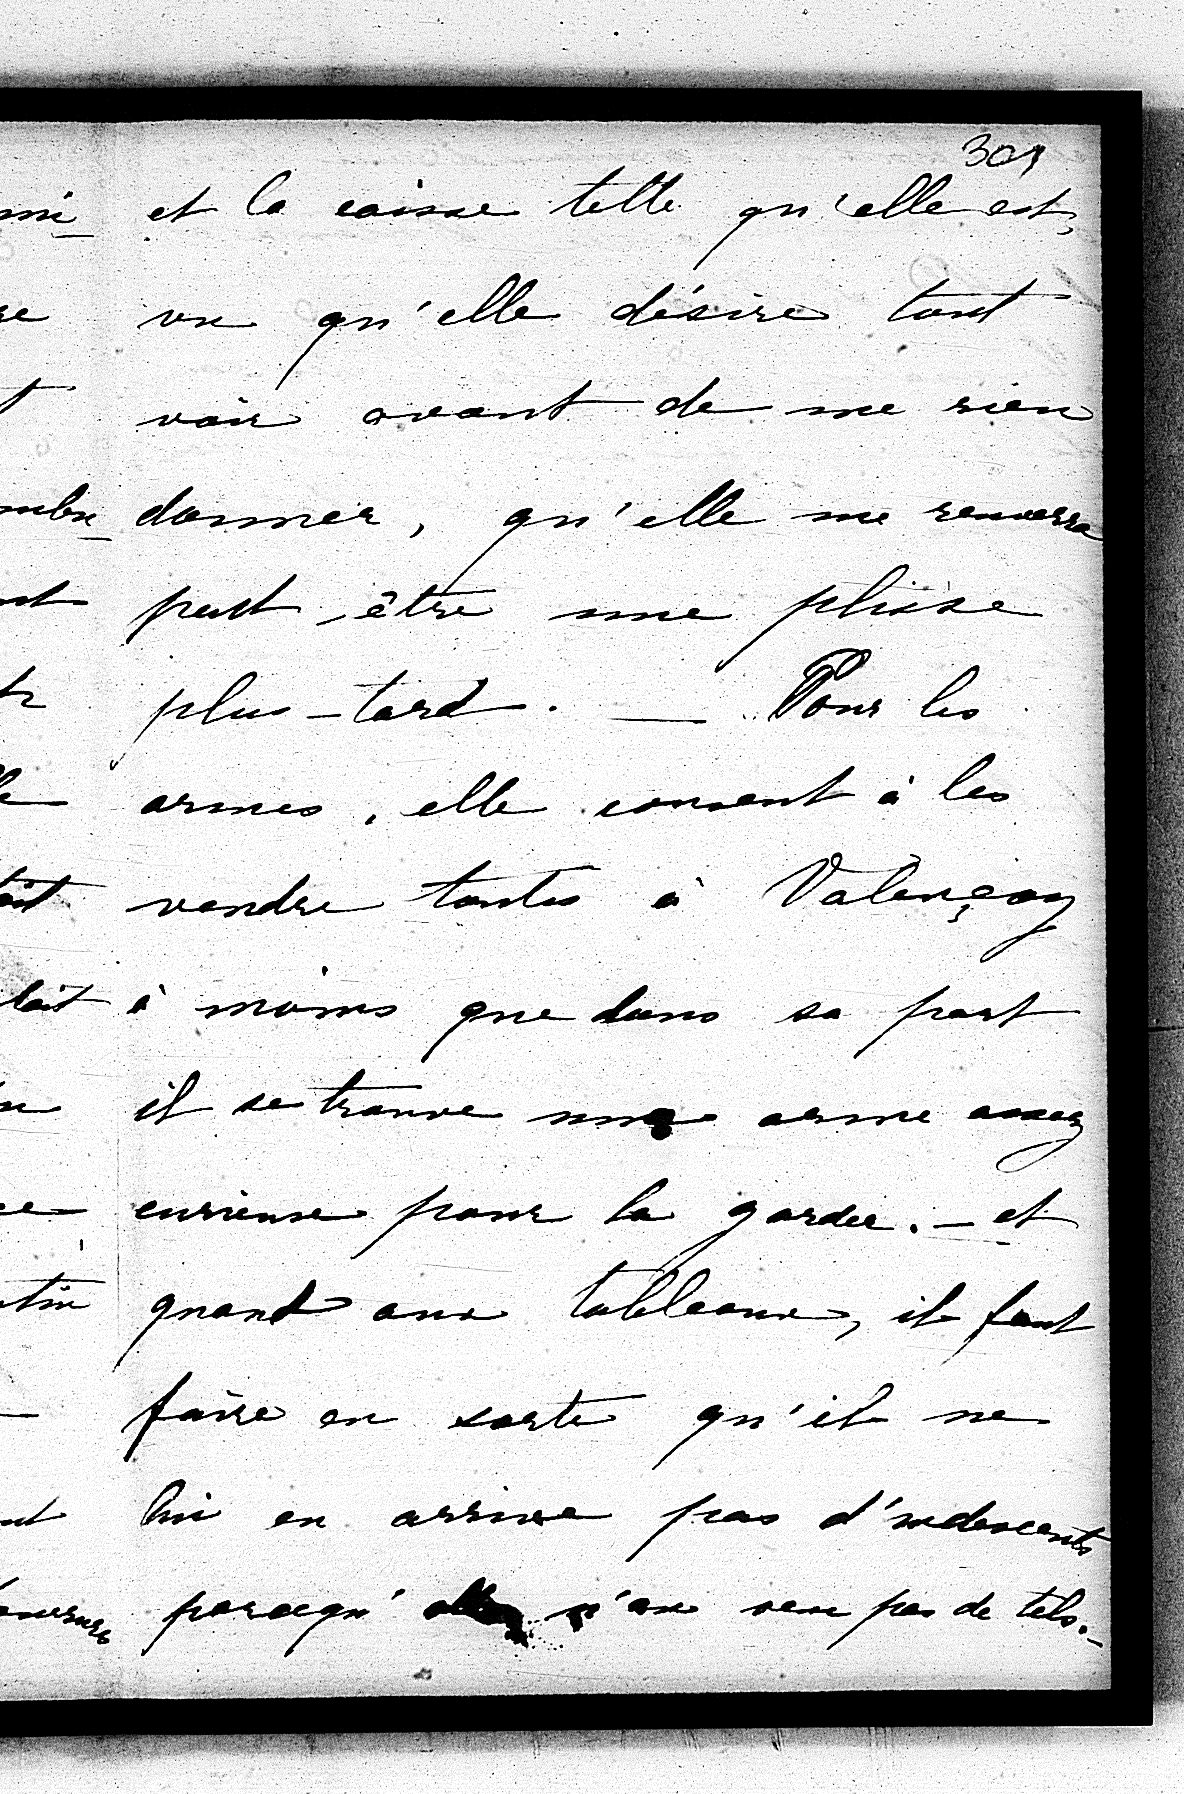 309
et la caisse telle qu'elle est,
vu qu'elle désire tout
voir avant de me rien
donner, qu'elle me renverra
peut-être une plisse
plus-tard. — Pour les
armes, elle consent à les
vendre toutes à Valençay
à moins que dans sa part
il se trouve une arme assez
curieuse pour la garder. — et
quand aux tableaux, il faut
faire en sorte qu'il ne
lui en arrive pas d'indescents
parcequ'elle n'en veux pas de tels. —